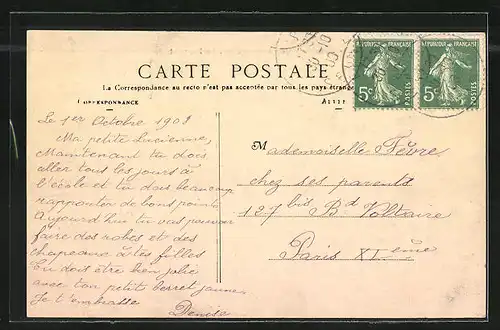 CARTE POSTALE
La Correspondance au recto n'est pas acceptée par tous les pays étrangers
CORRESPONDANCE
RÉPUBLIQUE FRANÇAISE
RÉPUBLIQUE FRANÇAISE
5c POSTES
5c POSTES
Le 1er Octobre 1908
Ma petite Lucienne,
Maintenant tu dois
aller tous les jours à
l'école et tu dois beaucoup
rapporter de bons points
Aujourd'hui tu vas pouvoir
faire des robes et des
chapeaux à tes filles
Tu dois être bien jolie
avec ton petit berret jaune.
Je t'embrasse
Denise
Mademoiselle Fèvre
chez ses parents
127 bis Bd Voltaire
Paris XIeme